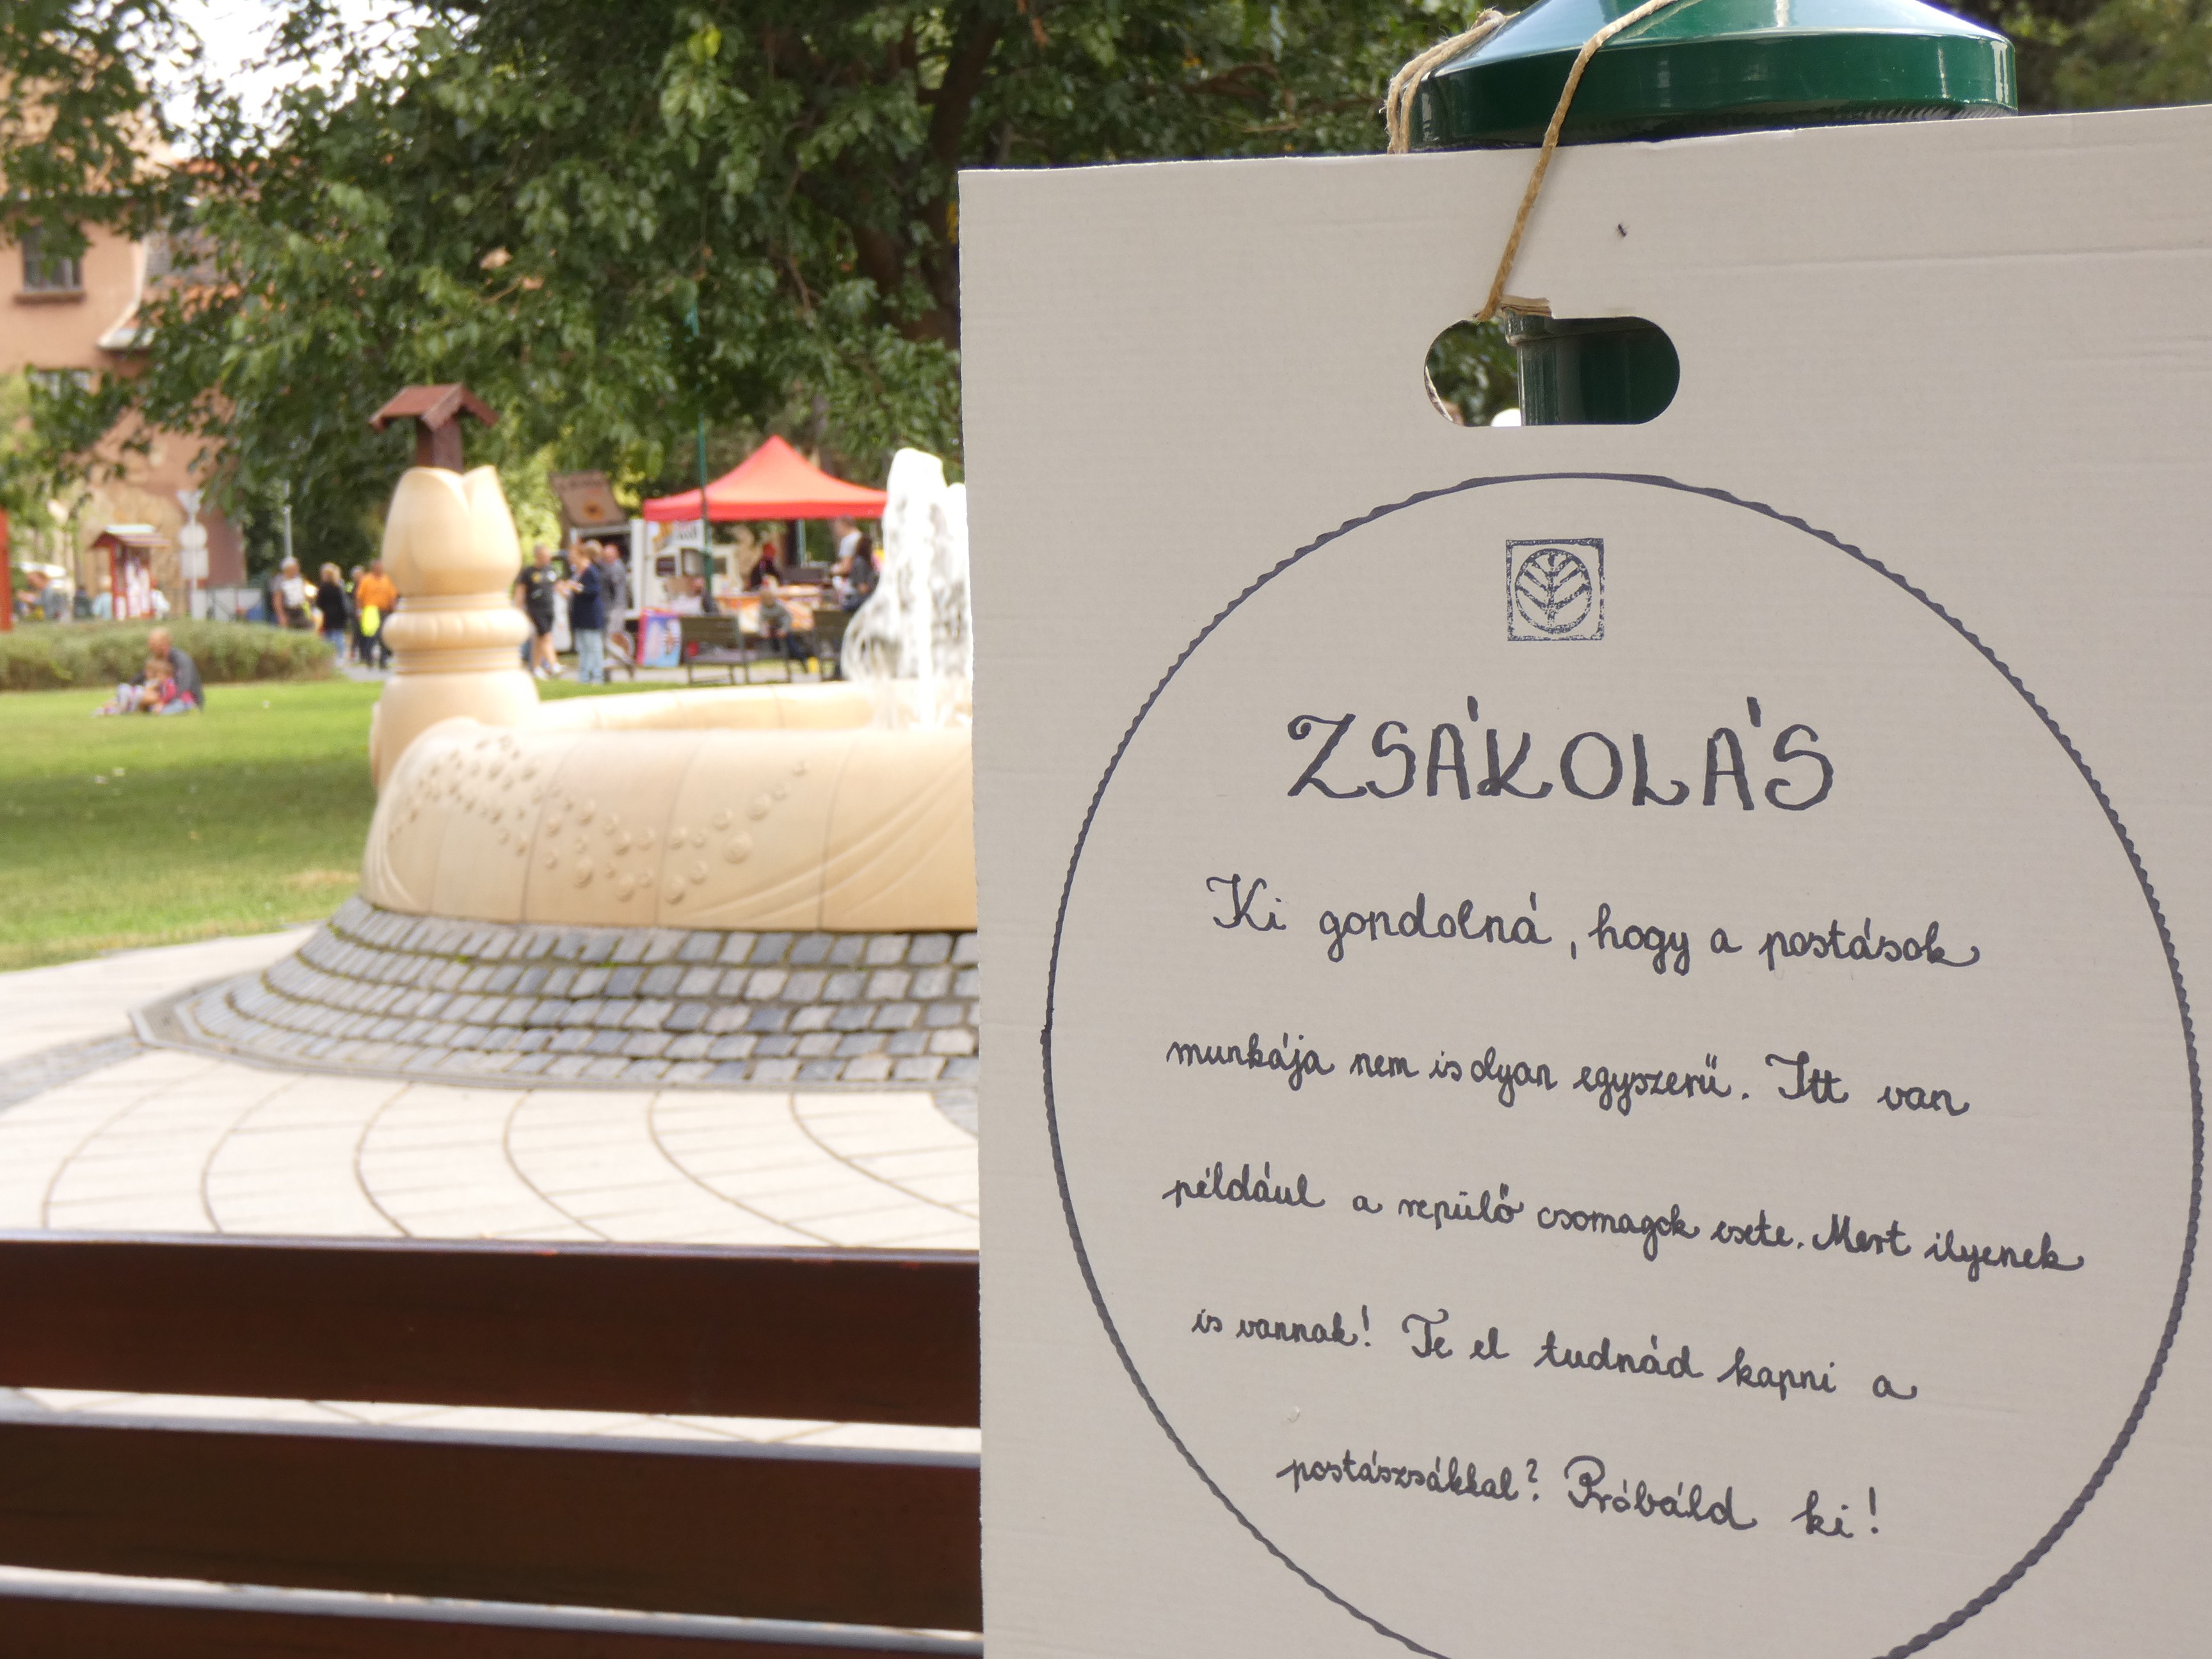 ZSÁKOLÁS
Ki gondolná, hogy a postások
munkája nem is olyan egyszerű. Itt van
például a repülő csomagok esete. Mert ilyenek
is vannak! Te el tudnád kapni a
postászsákkal? Próbáld ki!